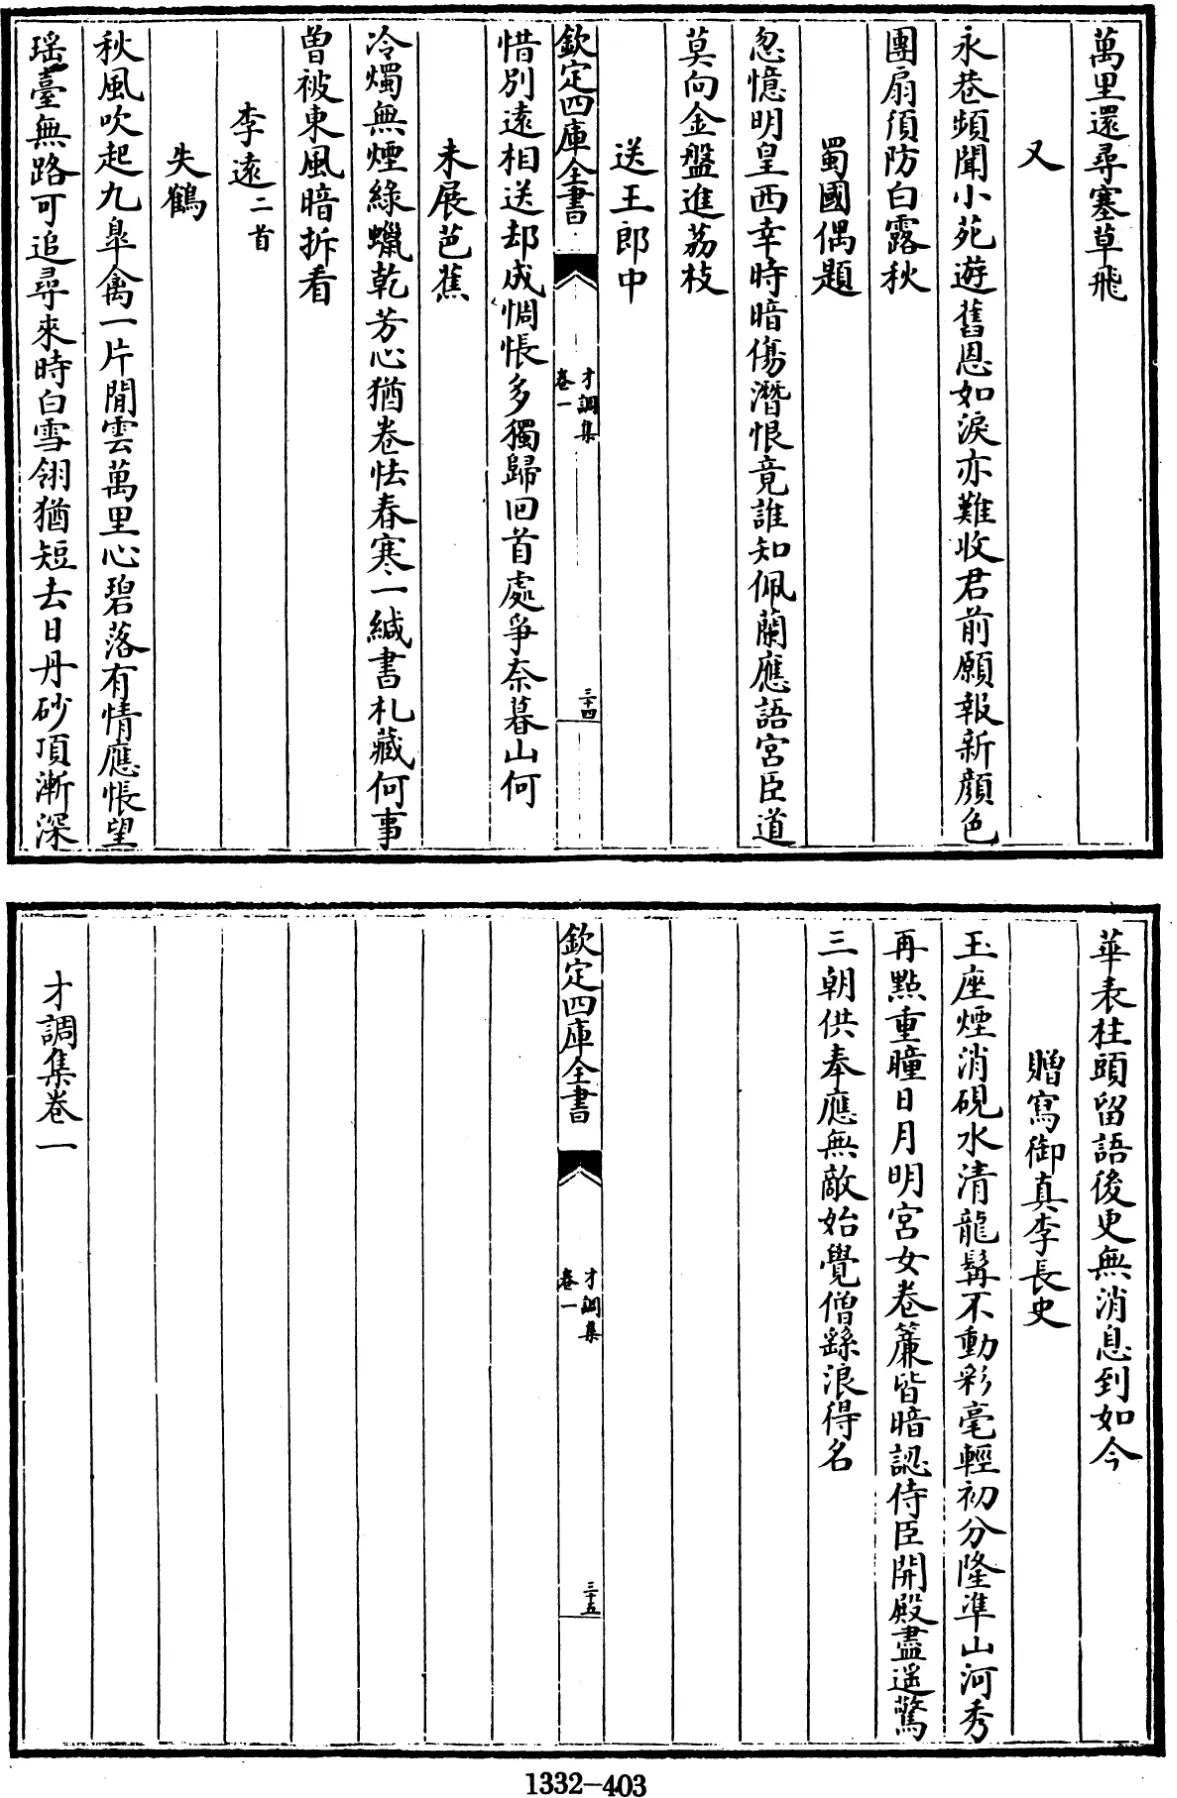 萬里還尋塞草飛
又
永巷頻聞小苑遊舊恩如淚亦難收君前願報新顔色
團扇須防白露秋
蜀國偶題
忽憶明皇西幸時暗傷潛恨竟誰知佩蘭應語宮臣道
莫向金盤進荔枝
送王郎中
欽定四庫全書
才調集
卷一
三十四
惜別遠相送却成惆悵多獨歸回首處爭奈暮山何
未展芭蕉
冷燭無煙綠蠟乾芳心猶卷怯春寒一緘書札藏何事
曾被東風暗拆看
李遠二首
失鶴
秋風吹起九臯禽一片閒雲萬里心碧落有情應悵望
瑶臺無路可追尋來時白雪翎猶短去日丹砂頂漸深
華表柱頭留語後更無消息到如今
贈寫御真李長史
玉座煙消硯水清龍髯不動彩毫輕初分隆準山河秀
再點重瞳日月明宮女卷簾皆暗認侍臣開殿盡遥驚
三朝供奉應無敵始覺僧繇浪得名
欽定四庫全書
才調集
卷一
三十五
才調集卷一
1332-403